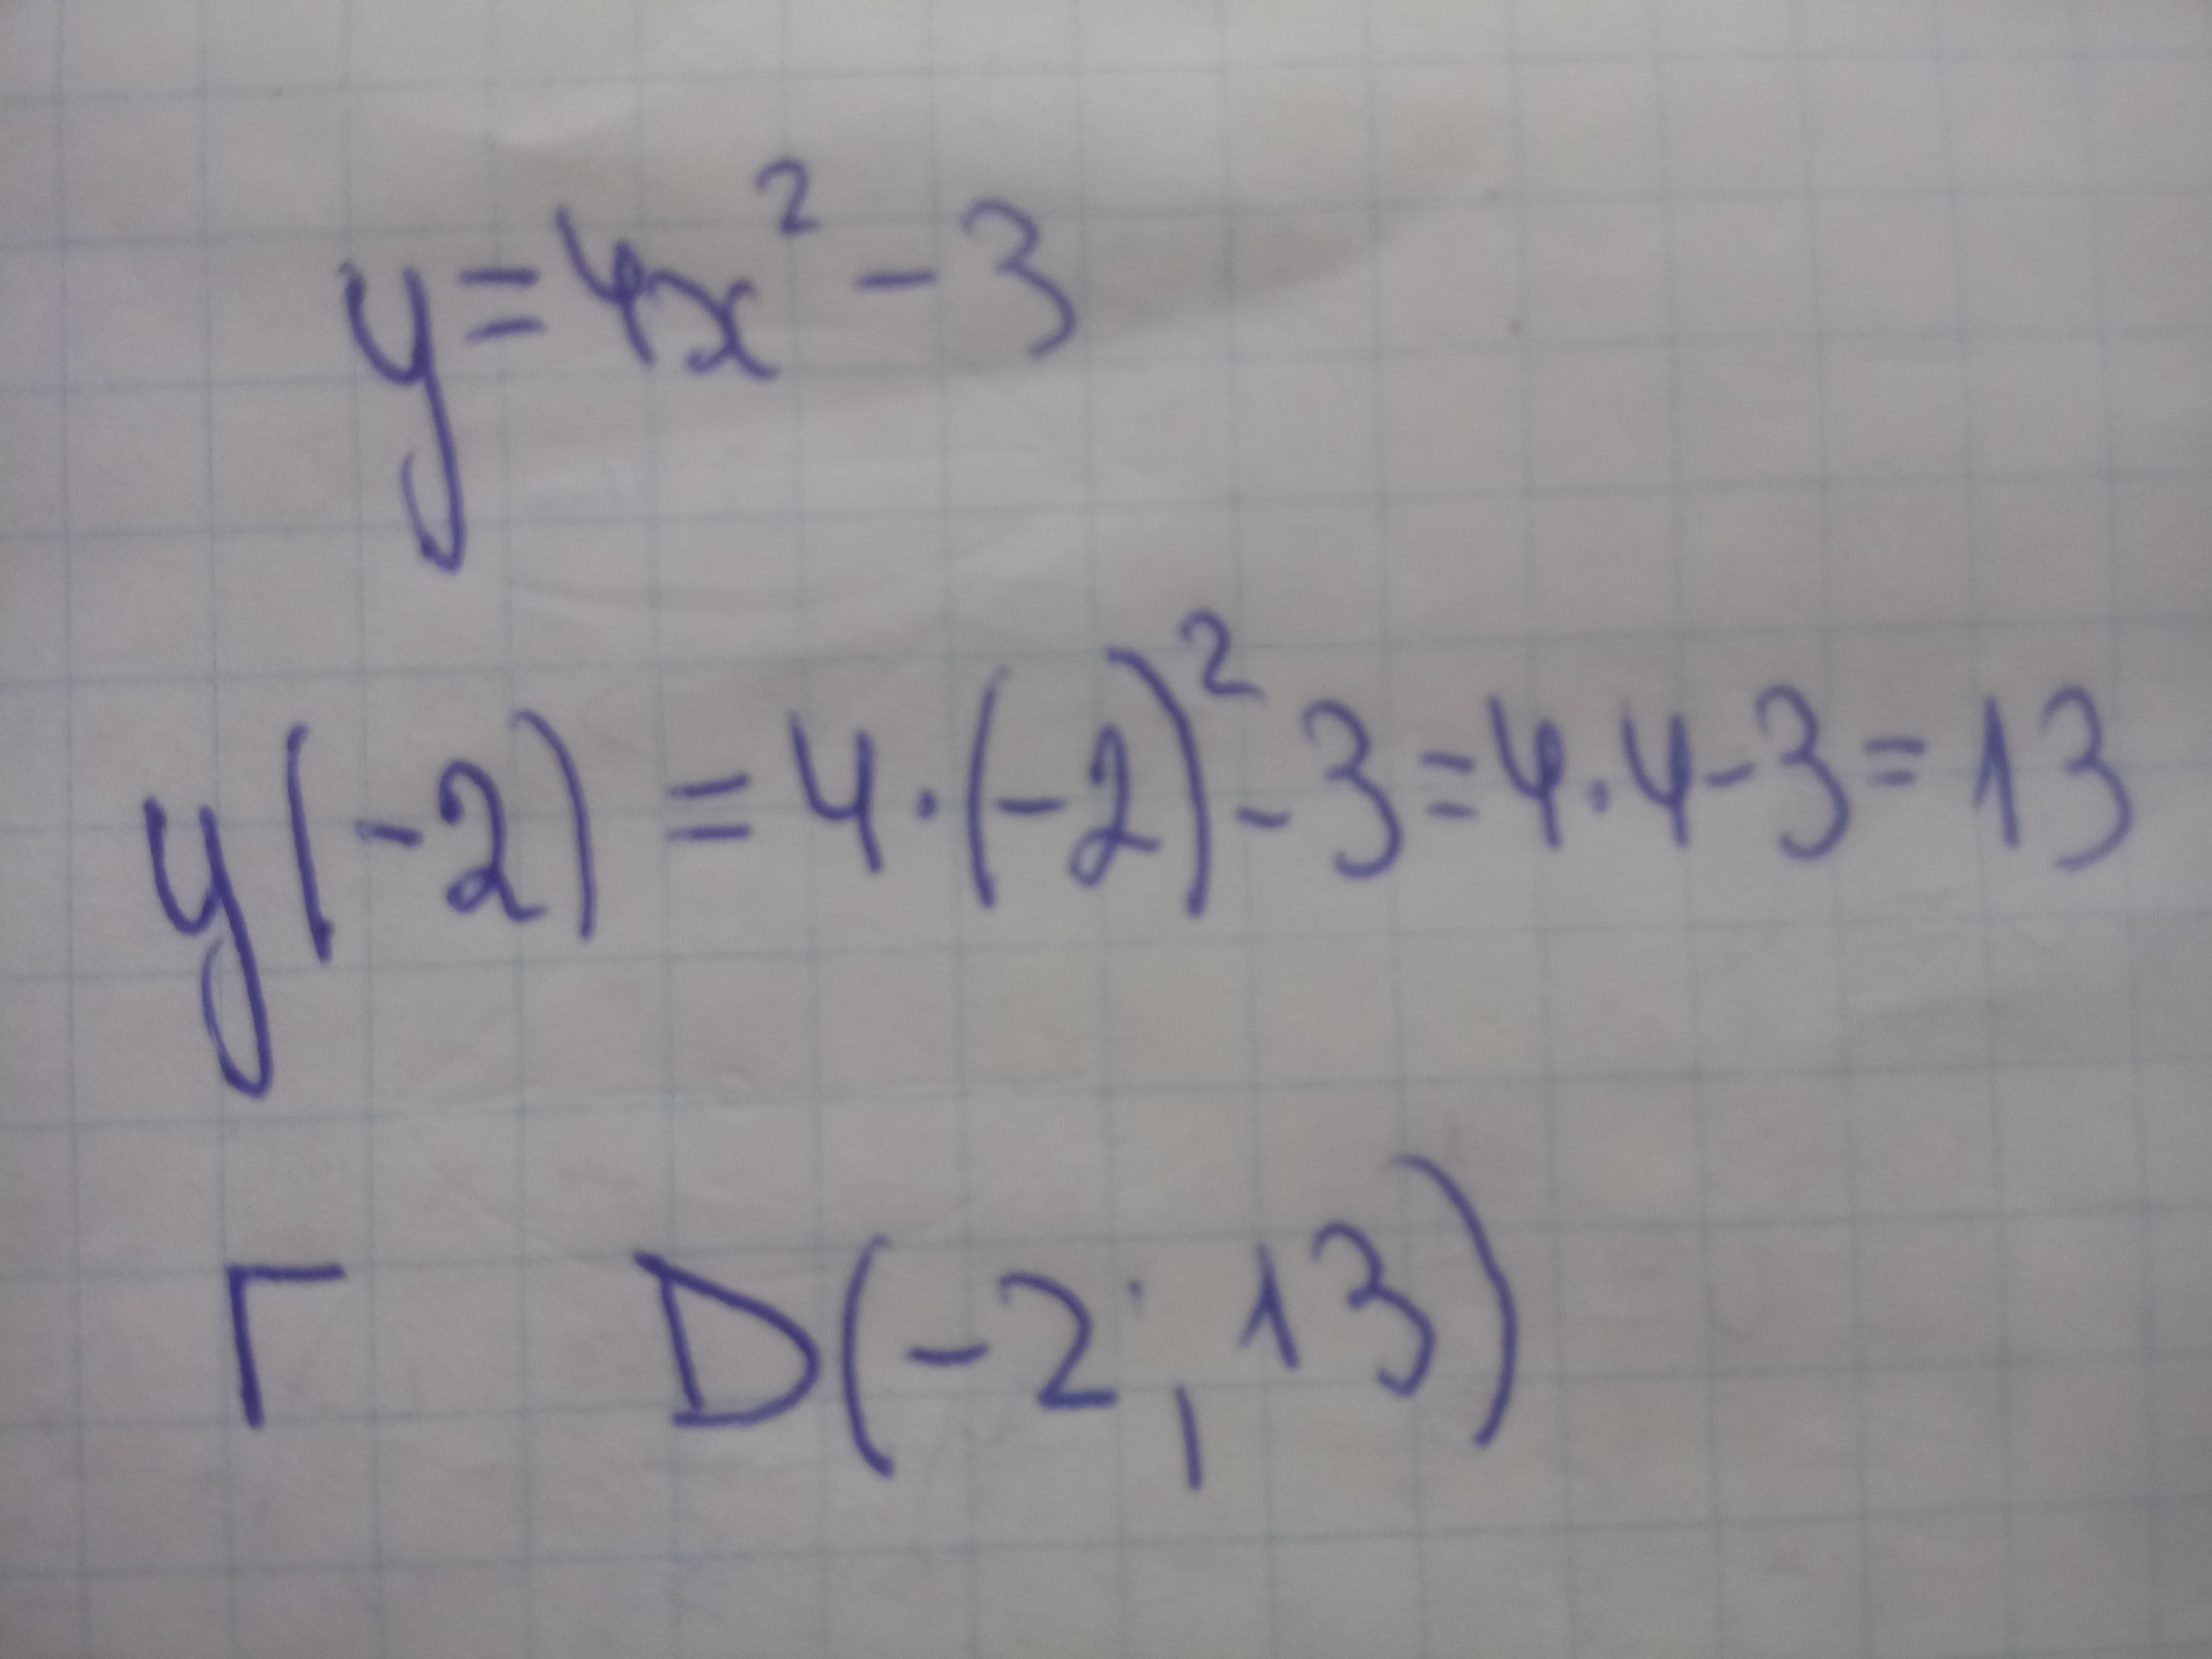 y=4x²-3
y(-2)=4·(-2)²-3=4·4-3=13
Г D(-2;13)